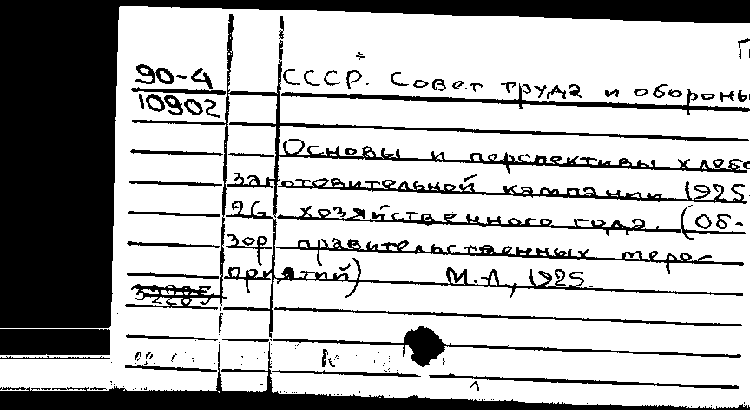 90-4 СССР. Совет труда и обороны
10902
Основы и перспективы хлебо
заготовительной кампании 1925-
26 хозяйственного года. (Об-
зор правительственных меро-
приятий) М.-Л., 1925